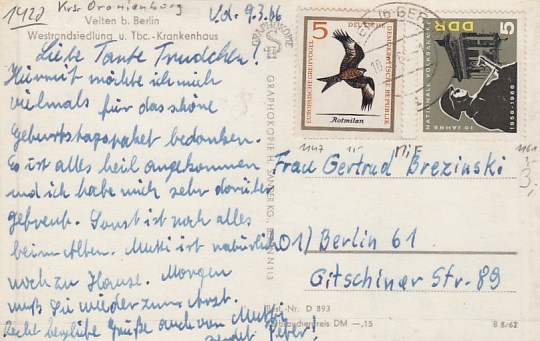 1422 Krs. Oranienburg
Velten b. Berlin
Westrandsiedlung u. Tbc.-Krankenhaus
Vd. 9.3.66
Liebe Tante Trudchen!
Hiermit möchte ich mich
vielmals für das schöne
Geburtstagspaket bedanken.
Es ist alles heil angekommen
und ich habe mich sehr darüber
gefreut. Sonst ist noch alles
beim Alten. Mutti ist natürlich
noch zu Hause. Morgen
muß sie wieder zum Arzt.
Recht herzliche Grüße auch von Mutti
sendet Peter!
GRAPHOKOPIE
GRAPHOKOPIE H. SANDER KG., BERLIN N 113
5
DDR
EUROPÄISCHE GREIFVÖGEL
DEUTSCHE DEMOKRATISCHE REPUBLIK
Rotmilan
5
DDR
NATIONALE VOLKSARMEE
10 JAHRE
1956-1966
1147
MiF
1161
3,-
Frau Gertrud Brezinski
01) Berlin 61
Gitschiner Str. 89
Best.-Nr. D 893
Verbraucherpreis DM —,15
B 8/62